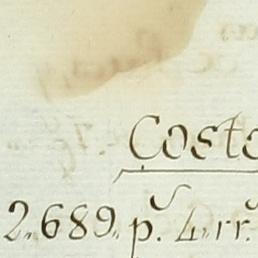 Coste
2"689" p.s 4"rr.s